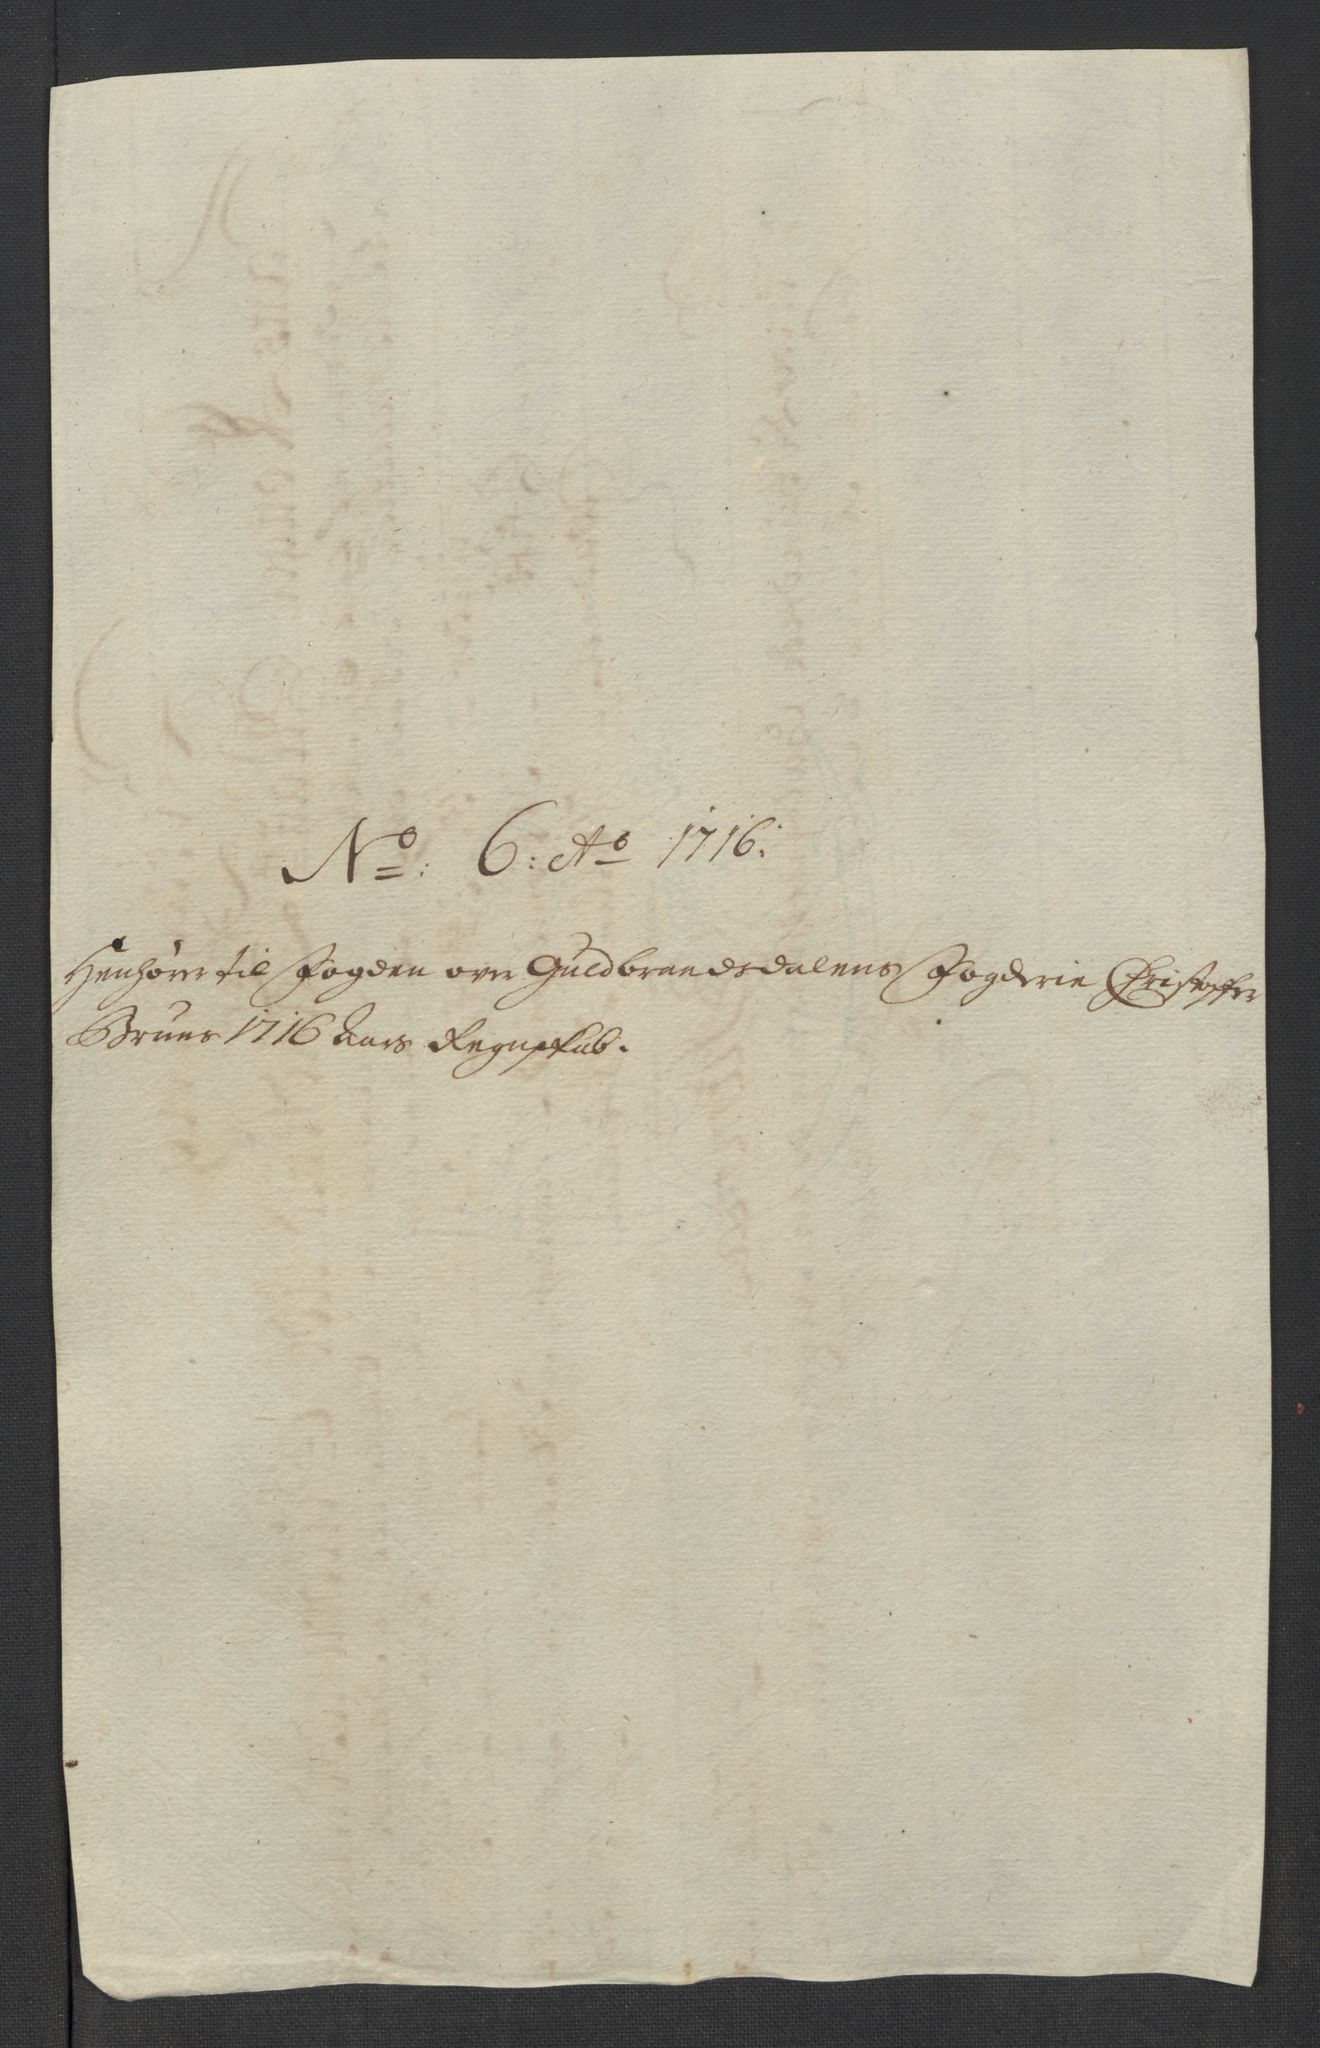 No: 6: Ao 1716:
Henhører til Fogden over Guldbrandsdalens Fogderie Christopher
Bruns 1716 Aars Regnskab.